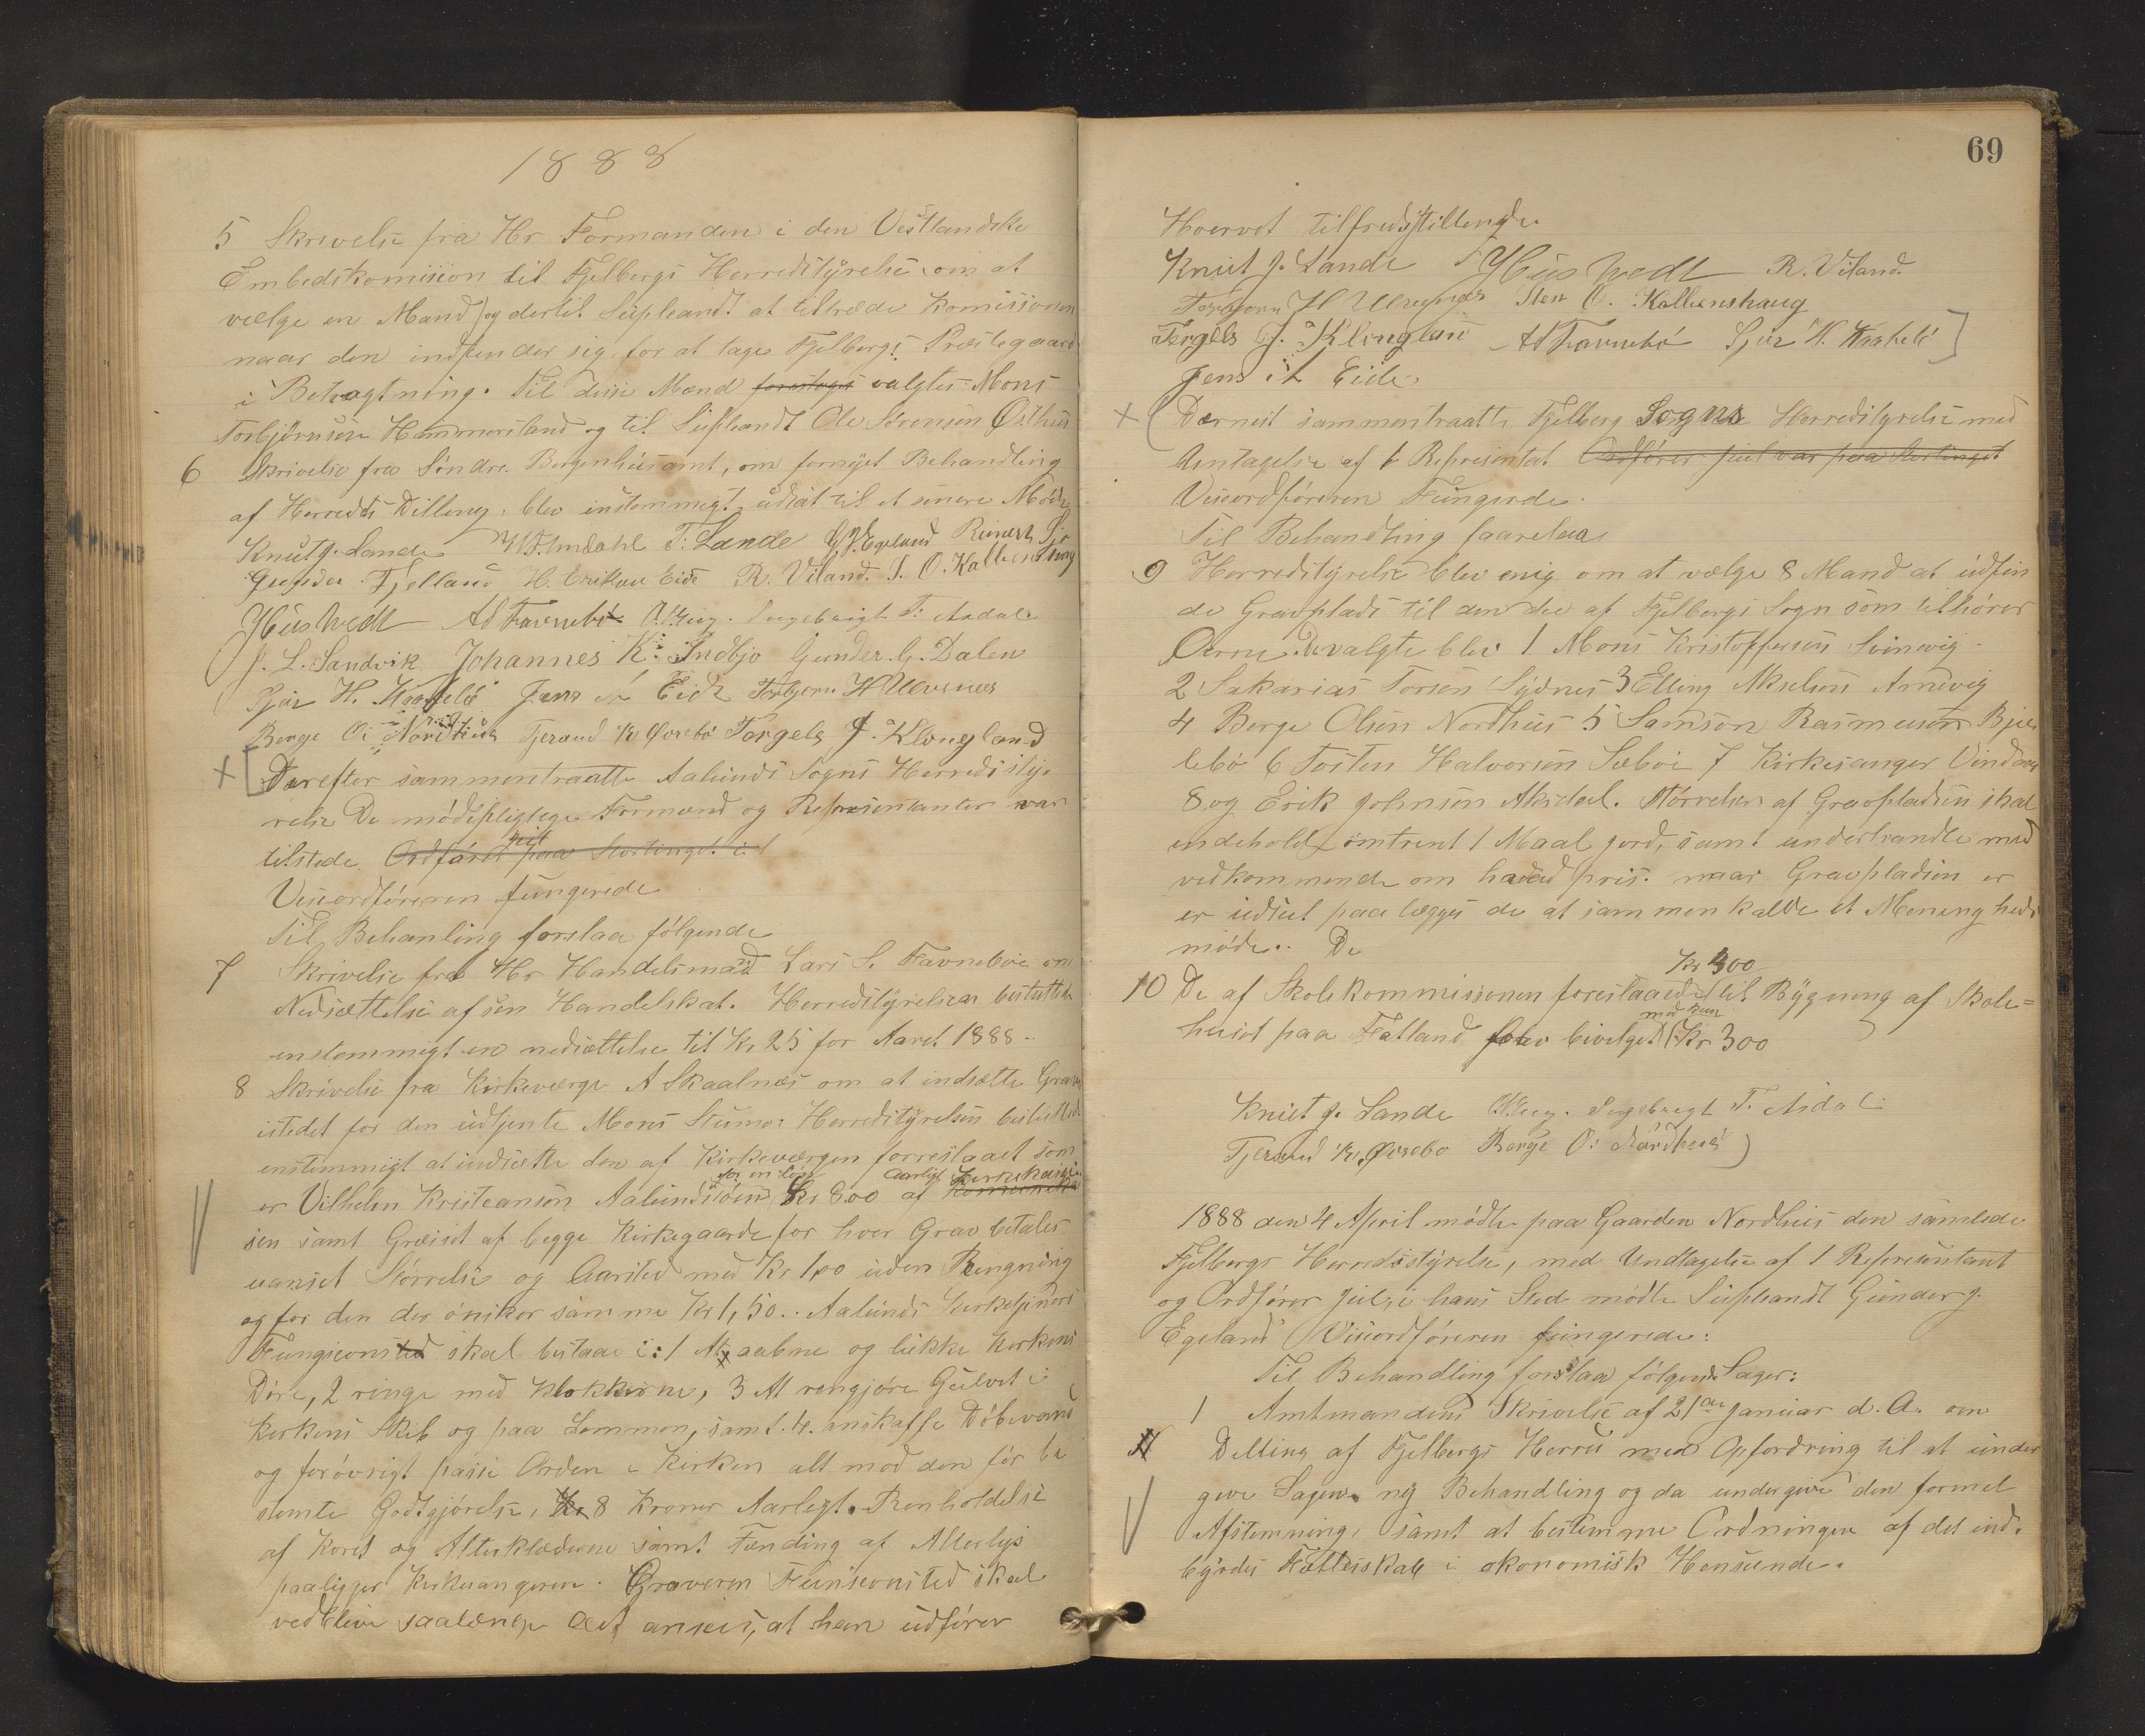 1888
5 Skrivelse fra Hr Formanden i den Vestlandske
Embedskomision til Fjelbergs Herredstyrelse om at
vælge en Mand og dertil Supleandt at tiltræde Komissionen
naar den indfinder sig for at tage Fjelbergs Præstegaard
i Betragtning. Til disse Mænd foreslages valgtes Mons
Torbjörnsen Hammersland og til Supleandt Ole Sörensen Östhus
6 Skrivelse fra Söndre Bergenhusamt, om fornyet Behandling
af Herredets Dilling. blev enstemmigt udsat til et senere Möde
Knut J. Lande T. Lande G J. Egeland
Gunder Fjelland H. Eriksen Eide R. Viland. S. O. Kallevashaug
Huswedt A S Favnebö Ingebrigt T. Asdal
J. L. Sandvik Johannes K. Indbjo Gunder G. Dalen
Sjur H. Jens Eide Torbjörn H Ulvenes
Borge O. Nordhus Tjerand K Övrebö Torgels J. Klongland
Derefter sammentraatte Aalunds Sogns Herredsstÿ-
relse De mödepligtege Formænd og Representanter var
tilstede Ordförer Juel paa Stortinget i
Viseordföreren fungerede
Til Behanling forelaa fölgende
7 Skrivelse fra Hr Handelsmand Lars S. Favneböe om
Nedsættelse af sin Handelskat. Herredstÿrelsen besluttede
enstemmigt en nedsættelse til Kr 25 for Aaret 1888.
8 Skrivelse fra Kirkeværge A Skaalnæs om at indsætte Graver
istedet for den udtjente Mons Stumo: Herredstÿrelsen besluttede
enstemmigt at indsætte den af Kirkeværgen forreslaaet som
for en Løn aarligt Kirkekassen
er Vilhelm Kristeansön Aalundsöen Kr 8.00 af Komunekas
sen samt Græsset af begge Kirkegaarde for hver Grav betales
uanset Störrelse og Aarsted med Kr 1,00 uden Rengning
og for den der önsker samme Kr 1,50. Aalunds Kirketjeners
Fungsionsted skal bestaae i: 1 At aabne og lukke Kirkens
Döre, 2 ringe med Klokkerne, 3 At rengjöre Gulvet i
Kirkens Skib og paa Lemmen, samt. 4. anskaffe Döbevand
og forövrigt passe Orden i Kirken alt mod den för be
stemte Godtgjörelse, Kr 8 Kroner Aarlegt. Renholdelse
af Koret og Alterklæderne samt Tænding af Alterlys
paaligger Kirkesangeren. Graveren Funksionsted skal
vedblive saalænge det ansees, at han udförer
69
Hvervet tilfredsstillende.
Knut J. Lande Huswedt R. Viland.
Torbjørn H Ulvenes Sten O. Kallevashaug
Torgels J. Klongland A S Favnebö Sjur H.
Jens Eide
Dernest sammentraatte Fjelberg Sogns Herredstyrelse med
Untagelse af 1 Representat Ordförer Juel var paa Stortinget
Viseordföreren Fungerde.
Til Behandling faarelaa
9 Herredstÿrelse blev enig om at vælge 8 Mand at udfin
de Gravplads til den del af Fjelbergs Sogn som tilhörer
Öerne. De valgte blev 1. Mons Kristoffersen Svinevig
2 Sakarias Torsen Sÿdnes 3 Elling Akselsen Arnevig
4 Borge Olsen Nordhus 5 Samson Rasmuson Bjel
lebö 6 Tosten Halvorsen Sæböe 7 Kirkesanger Vindenes
8 og Erik Johnsen Aksdal. Störrelsen af Gravpladsen skal
indeholde omtrent 1 Maal jord, samt underhandle med
vedkommende om hvad pris. naar Gravpladsen er
er udset paalægges de at sammenkalde et Menigheds
möde. De
Kr 400
10 De af Skolekommissionen foreslaaede til Bÿgning af Skole=
med kun
huset paa Fatland blev bevilget Kr 300
Knut J. Lande Ingebrigt T. Asdal
Tjerand K. Övrebö Borge O. Nordhus
1888 den 4 April mödte paa Gaarden Nordhus den samlede
Fjelbergs Herredsstÿrelse, med Undtagelse af 1 Representant
og Ordförer Juel, i hans Sted mödte Supleandt Gunder J.
Egeland Viseordföreren fungerede:
Til Behandling forelaa fölgende Sager:
1 Amtmandens Skrivelse af 21de Januar d. A. om
Delling af Fjelbergs Herred med Opfordring til at under
give Sagen nÿ Behandling og da undergive den formel
Afstemning, samt at bestemme Ordningen af det ind.
bÿrdes Fællesskab i økonomisk Henseende.